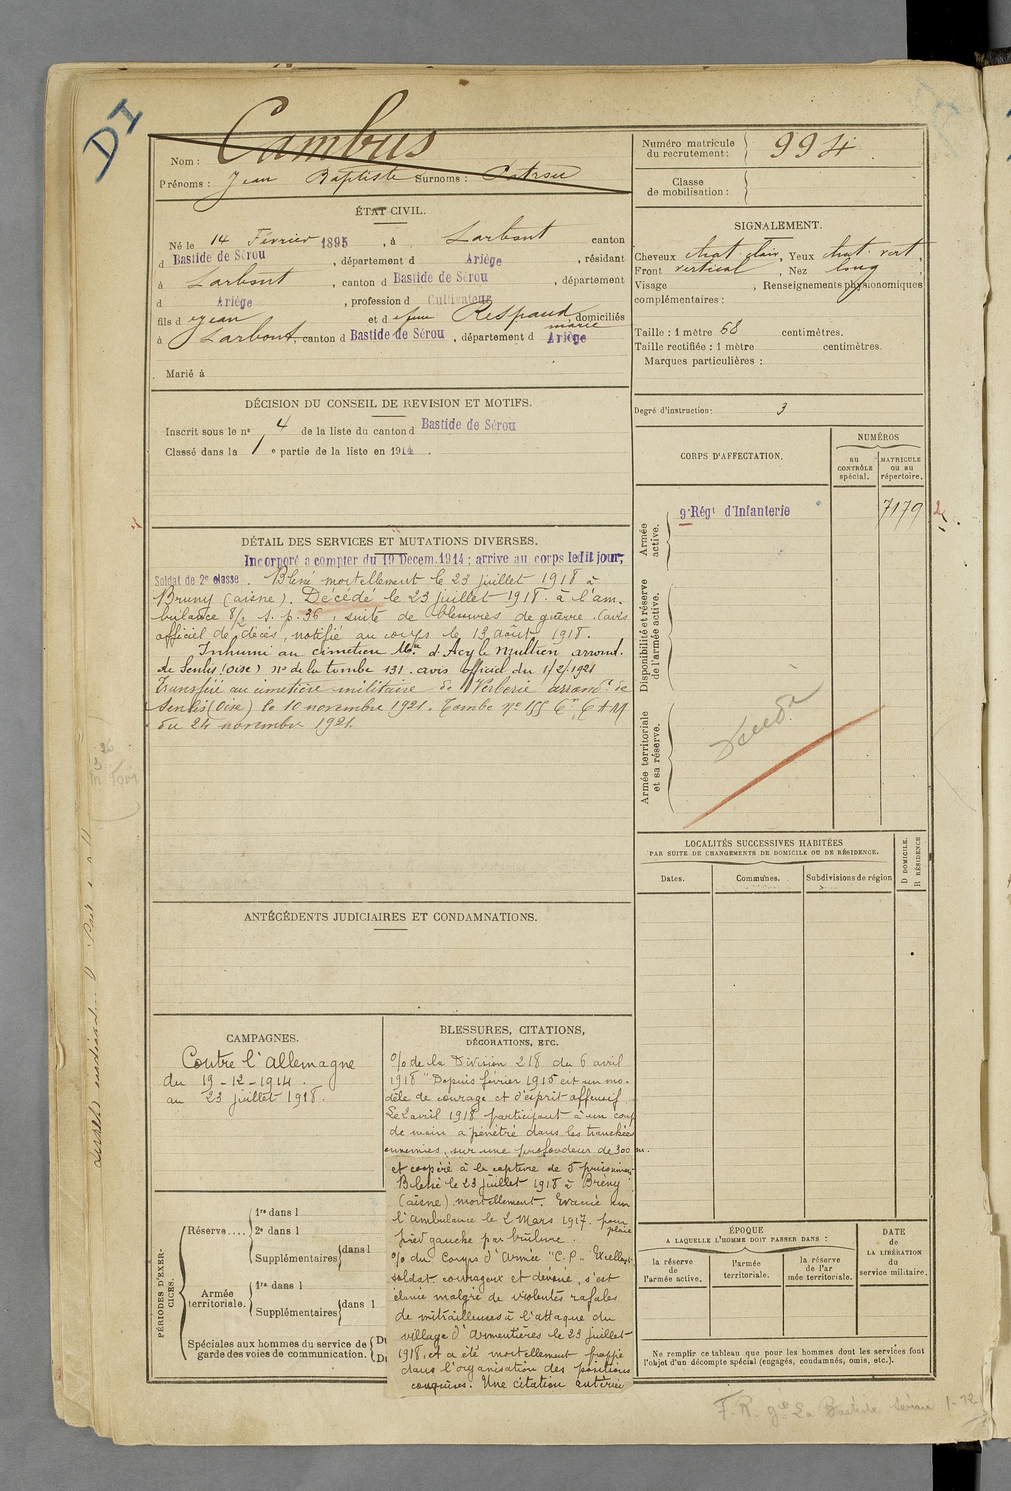 DI
Nom : Cambus
Prénoms : Jean Baptiste Surnoms :
ÉTAT CIVIL.
Né le 14 Février 1895, à Larbont canton
d Bastide de Sérou, département d Ariège, résidant
à Larbont, canton d Bastide de Sérou, département
d Ariège, profession d Cultivateur
fils d Jean et d Respaud domiciliés
Marie
à Larbont, canton d Bastide de Sérou, département d Ariège
Marié à
DÉCISION DU CONSEIL DE REVISION ET MOTIFS.
Inscrit sous le n° 4 de la liste du canton d Bastide de Sérou
Classé dans la 1e partie de la liste en 1914.
DÉTAIL DES SERVICES ET MUTATIONS DIVERSES.
Incorporé a compter du 19 Decem. 1914 ; arrive au corps ledit jour,
Soldat de 2e classe. Blessé mortellement le 23 juillet 1918 à
Bruny (aisne). Décédé le 23 juillet 1918. à l'am.
bulance 8/2 s. p. 36, suite de blessures de guerre. (avis
officiel de décès, notifié au corps le 13 août 1918.
Inhumé au cimetière Mre d'Acy le Multien arrond.
de Senlis (Oise) n° de la tombe 131. avis officiel du 1/2/1921
Transféré au cimetière militaire de Verberie arrond. de
Senlis (Oise) le 10 novembre 1921. Tombe n° 155
du 24 novembre 1921.
ANTÉCÉDENTS JUDICIAIRES ET CONDAMNATIONS.
CAMPAGNES.
Contre l'Allemagne
du 19-12-1914.
au 23 juillet 1918.
BLESSURES, CITATIONS,
DÉCORATIONS, ETC.
% de la Division 218 du 6 avril
1918 "Depuis février 1915 est un mo-
dèle de courage et d'esprit offensif.
Le 2 avril 1918 participant à un coup
de main a pénétré dans les tranchées
ennemies, sur une profondeur de 300 m.
et coopéré à la capture de 5 prisonniers
Blessé le 23 juillet 1918 à Brény
(aisne) mortellement. Evacué sur
l'ambulance le 2 Mars 1917. pour plaie
pied gauche par brûlure.
% du Corps d'Armée "C.P.. Excellent
soldat courageux et dévoué, s'est
élancé malgré de violentes rafales
de mitrailleuses à l'attaque du
village d'Armentières le 23 juillet
1918, et a été mortellement frappé
dans l'organisation des positions
conquises. Une citation antérieure
PÉRIODES D'EXERCICES.
Réserve....
1re dans l
2e dans l
Supplémentaires dans l
Armée
territoriale.
1re dans l
Supplémentaires dans l
Spéciales aux hommes du service de
garde des voies de communication.
Du
Du
Numéro matricule
du recrutement : 994
Classe
de mobilisation :
SIGNALEMENT.
Cheveux chat. clair, Yeux chat. vert,
Front vertical, Nez long
Visage , Renseignements physionomiques
complémentaires :
Taille : 1 mètre 68 centimètres.
Taille rectifiée : 1 mètre centimètres.
Marques particulières :
Degré d'instruction : 3
CORPS D'AFFECTATION.
NUMÉROS
au
CONTRÔLE
spécial.
MATRICULE
ou au
répertoire.
Armée
active.
9e Régt d'Infanterie
7179
Disponibilité et réserve
de l'armée active.
Armée territoriale
et sa réserve.
LOCALITÉS SUCCESSIVES HABITÉES
PAR SUITE DE CHANGEMENTS DE DOMICILE OU DE RÉSIDENCE.
Dates.
Communes.
Subdivisions de région
D DOMICILE.
R RÉSIDENCE
ÉPOQUE
A LAQUELLE L'HOMME DOIT PASSER DANS :
la réserve
de
l'armée active.
l'armée
territoriale.
la réserve
de l'ar
mée territoriale.
DATE
de
LA LIBÉRATION
du
service militaire.
Ne remplir ce tableau que pour les hommes dont les services font
l'objet d'un décompte spécial (engagés, condamnés, omis, etc.).
F. R. gie La Bastide Sérou